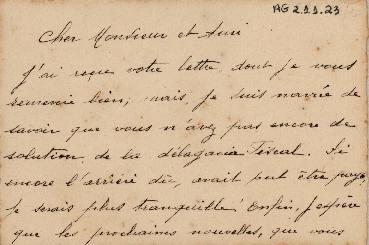 AG 2.11.23
Cher Monsieur et Ami
J'ai reçue votre lettre dont je vous
remercie bien; mais, je suis navrée de
savoir que vous n'avez pas encore de
solution, de la délagacia Fiscal. Si
encore l'arriéré dû, avait put être payé,
je serais plus tranquille! Enfin, j'espère
que les prochaines nouvelles, que vous